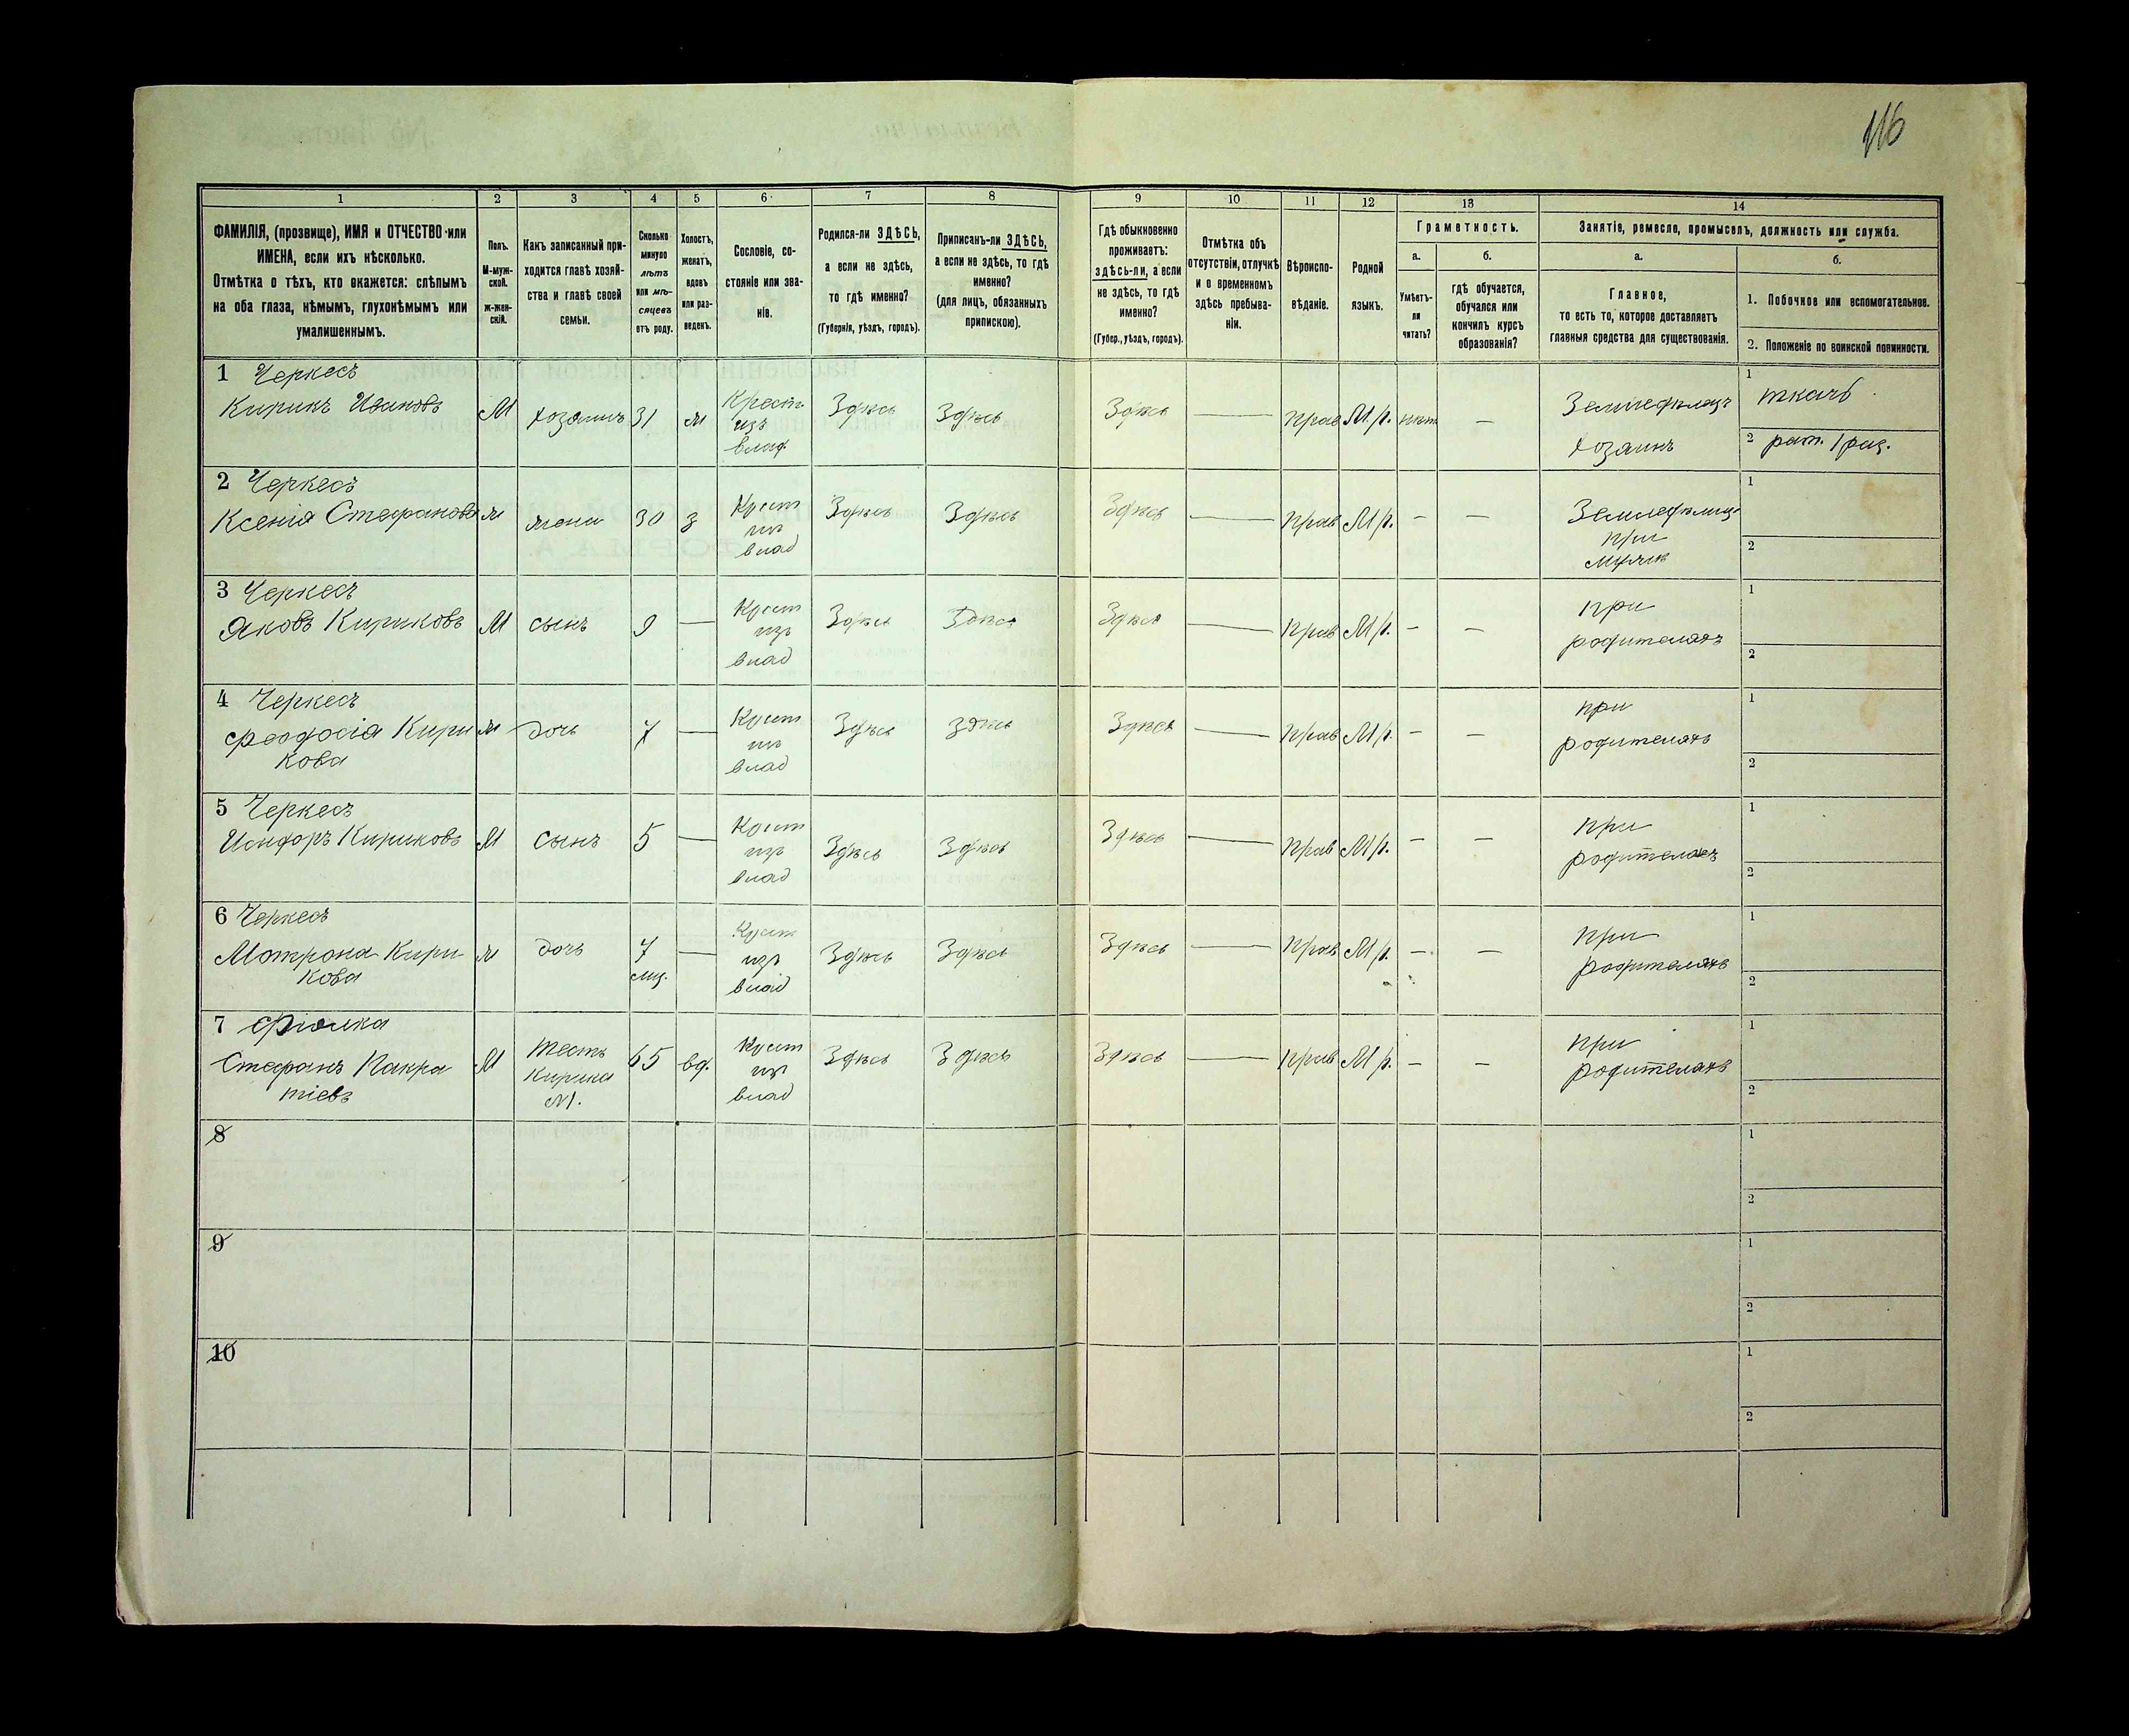 116
1 2 3 4 5 6 7 8 9 10 11 12 13 14
ФАМИЛІЯ, (прозвище), ИМЯ и ОТЧЕСТВО или ИМЕНА, если ихъ нѣсколько.
Отмѣтка о тѣхъ, кто окажется: слѣпымъ на оба глаза, нѣмымъ, глухонѣмымъ или умалишеннымъ.
Полъ.
М-муж-
ской.
ж-жен-
скій.
Какъ записанный при-
ходится главѣ хозяй-
ства и главѣ своей
семьи.
Сколько
минуло
лѣтъ
или мѣ-
сяцевъ
отъ роду.
Холостъ,
женатъ,
вдовъ
или раз-
веденъ.
Сословіе, со-
стояніе или зва-
ніе.
Родился-ли ЗДѢСЬ,
а если не здѣсь,
то гдѣ именно?
(Губернія, уѣздъ, городъ).
Приписанъ-ли ЗДѢСЬ,
а если не здѣсь, то гдѣ
именно?
(для лицъ, обязанныхъ
припискою).
Гдѣ обыкновенно
проживаетъ:
здѣсь-ли, а если
не здѣсь, то гдѣ
именно?
(Губер., уѣздъ, городъ).
Отмѣтка объ
отсутствіи, отлучкѣ
и о временномъ
здѣсь пребыва-
ніи.
Вѣроиспо-
вѣданіе.
Родной
языкъ.
Грамотность.
а.
Умѣетъ-
ли
читать?
б.
гдѣ обучается,
обучался или
кончилъ курсъ
образованія?
Занятіе, ремесло, промыселъ, должность или служба.
а.
Главное,
то есть то, которое доставляетъ
главныя средства для существованія.
б.
1. Побочное или вспомогательное.
2. Положеніе по воинской повинности.
1 Черкесъ
Кирикъ Ивановъ М хозяинъ 31 ж Крест. изъ влад. Здѣсь Здѣсь Здѣсь — прав М.р. нѣтъ — Земледѣлецъ хозяинъ 1 ткачъ
2 рат. 1 раз.
2 Черкесъ
Ксенія Стефанова ж жена 30 з Крест изъ влад Здѣсь Здѣсь Здѣсь — прав М.р. — — Земледѣлица при мужѣ 1 2
3 Черкесъ
Яковъ Кириковъ М сынъ 9 — Крест изъ влад Здѣсь Здѣсь Здѣсь — прав М.р. — — при родителяхъ 1 2
4 Черкесъ
Феодосія Кири
кова ж дочь 7 — Крест изъ влад Здѣсь Здѣсь Здѣсь — прав М.р. — — при родителяхъ 1 2
5 Черкесъ
Исидоръ Кириковъ М сынъ 5 — Крест изъ влад Здѣсь Здѣсь Здѣсь — прав М.р. — — при родителяхъ 1 2
6 Черкесъ
Матрона Кири
кова ж дочь 7 мц. — Крест изъ влад Здѣсь Здѣсь Здѣсь — прав М.р. — — при родителяхъ 1 2
7 Фіалка
Стефанъ Панкра
тіевъ М тесть Кирика №1. 65 вд. Крест изъ влад Здѣсь Здѣсь Здѣсь — прав М.р. — — при родителяхъ 1 2
8 1 2
9 1 2
10 1 2